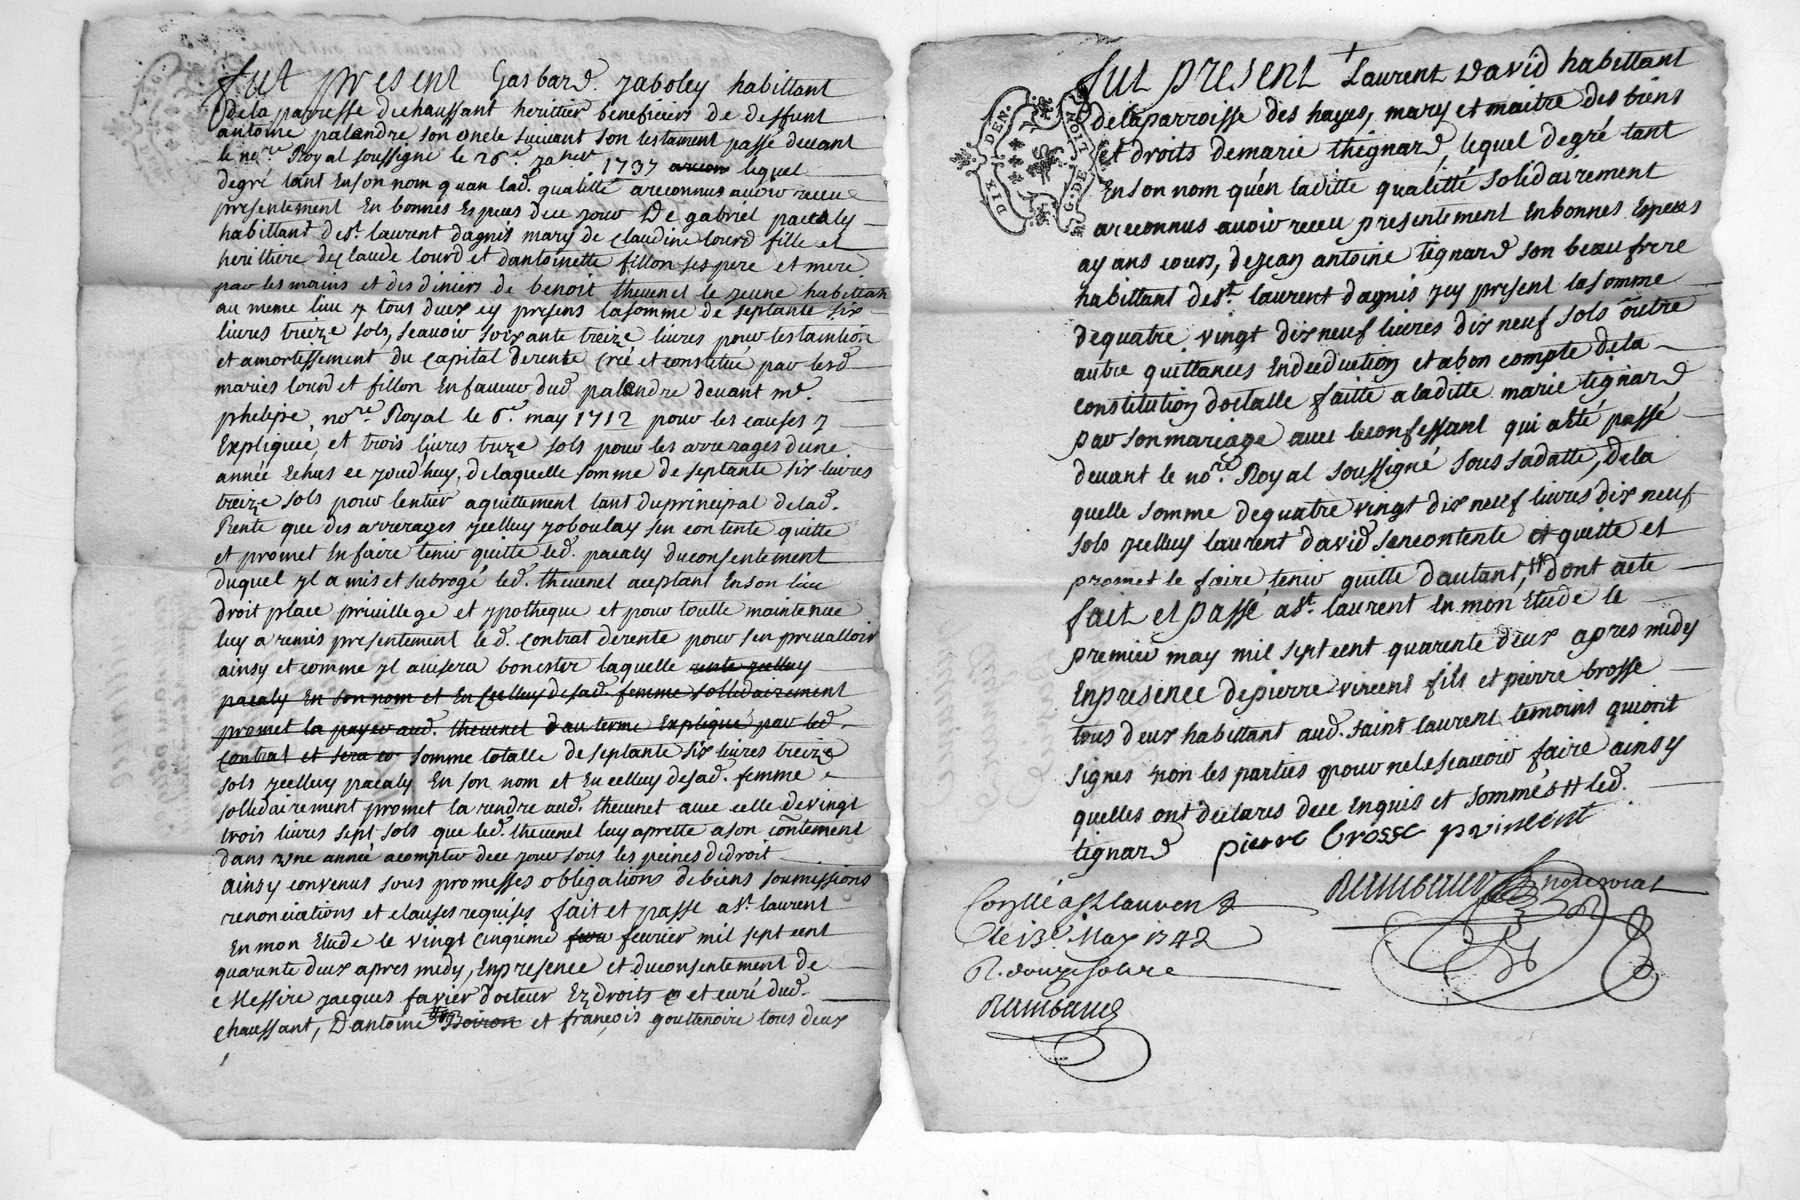 fut present Gasbard. jaboley habittant
de la paroesse dechaussant herittier beneficiers de deffunt
antoine palandre son oncle suivant son testament passé devant
le nore Royal soussigné le 26e janer 1737 lequel
degré tant En son nom quan lad. qualitté areconnus avoir receu
presentement En bonnes Especes dece jour De gabriel pacaly
habittant de st. laurent dagnis mary de claudine lourd fille et
herittiere declaude lourd et dantoinette fillon ses pere et mere
par les mains et des diniers de benoit thevenet le jeune habittan
au meme lieu y tous deux cy presens la somme de septante six
livres treize sols, scavoir soixante treize livres pour lestaintion
et amortissement du capital derente créé et constitué par lesd
mariés lourd et fillon En faveur dud palandre devant me.
phelipe, nore Royal le 6e may 1712 pour les causes y
Expliquée, et trois livres treze sols pour les arrerages dune
année Echus ce jourdhuy, de laquelle somme de septante six livres
treize sols pour lentier aquittement tant du principal de lad.
Rente que des arrerages jcelluy joboulay sen contente quitte
et promet En faire tenir quitte led. pacaly du consentement
duquel jl a mis et subrogé led. thevenet aceptant En son lieu
droit place privillege et ypotheque et pour toutte maintenue
luy a remis presentement led. contrat de rente pour sen prevalloir
ainsy et comme jl avisera bon ester laquelle rente jcelluy
pacaly En son nom et En celluy de sad. femme sollidairement
promet la payer aud. thevenet dau terme Expliqué par led.
contrat et sera somme totalle de septante six livres treize
sols jcelluy pacaly En son nom et En celluy de sad. femme
sollidairement promet la rendre aud. thevenet avec celle de vingt
trois livres sept sols que led. thevenet luy aprette a son contement
dans une année acompter dece jour sous les peines de droit
ainsy convenus sous promesses obligations de biens soumissions
renonciations et clauses requises fait et passé a st. laurent
En mon Etude le vingt cinqieme fevrier mil sept cent
quarante deux apres medy, En presence et du consentement de
Messire jacques favier docteur Ez droits et curé dud.
chaussant, Dantoine Boiron et françois gouttenoire tous deux
fut present Laurent David habittant
de la parroisse des hayes, mary et maitre des biens
et droits de marie thignard lequel degré tant
En son nom quén laditte qualitté solidairement
areconnus avoir receu presentement En bonnes Especes
ayans cours, de jean antoine tignard son beau frere
habittant de st. laurent dagnis jcy present la somme
de quatre vingt dix neuf livres dix neuf sols outre
autre quittances En deduction et a bon compte de la
constitution dotalle faitte a laditte marie tignard
par son mariage avec leconfessant qui a été passé
devant le nore Royal soussigné sous sa datte, de la
quelle somme de quatre vingt dix neuf livres dix neuf
sols jcelluy laurent david sencontente et quitte et
promet le faire tenir quitte dautant, # dont acte
fait et passé a st. laurent En mon Etude le
premier may mil sept cent quarente deux apres medy
En presence de pierre vincent fils et pierre brosse
tous deux habittant aud. saint laurent temoins quiont
signés non les parties pour ne le scavoir faire ainsy
quelles ont declarés dece Enquis et sommés # led.
tignard pierre brosse pvincent
Conllé a st laurent
le 13e May 1742
R. douze sols